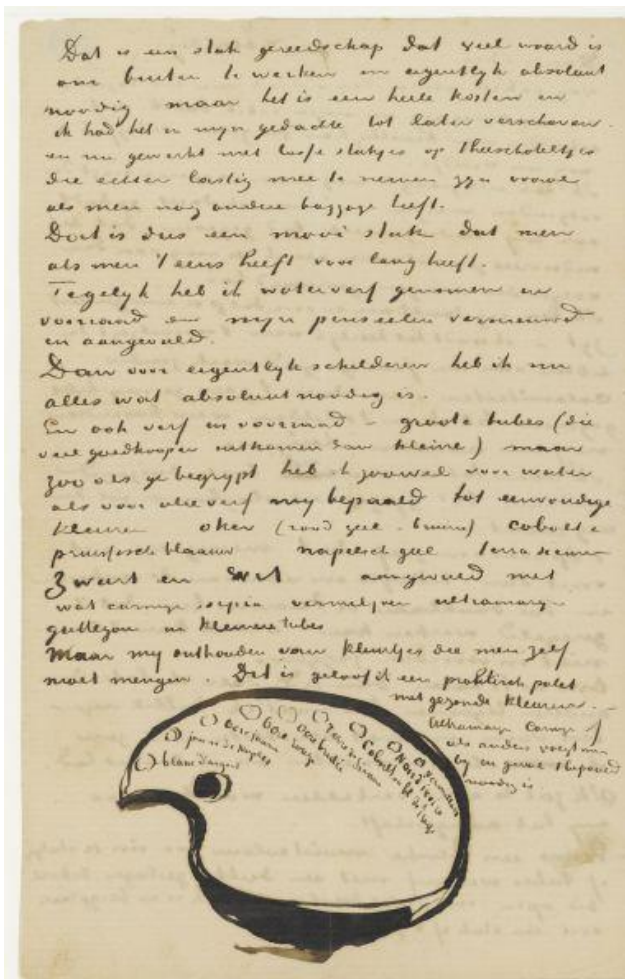 Dat is een stuk gereedschap dat veel waard is
om buiten te werken en eigentlyk absoluut
noodig maar het is een heele kosten en
ik had het in myn gedachte tot later verschoven
en nu gewerkt met losse stukjes op theeschoteltjes
die echter lastig mee te nemen zyn vooral
als men nog andere baggage heeft.
Dat is dus een mooi stuk dat men
als men 't eens heeft voor lang heeft.
Tegelyk heb ik waterverf genomen in
voorraad en myn penseelen vernieuwd
en aangevuld.
Dan voor eigentlyk schilderen heb ik nu
alles wat absoluut noodig is.
En ook verf in voorraad - groote tubes (die
veel goedkooper uitkomen dan kleine) maar
zoo als ge begrypt heb ik zoowel voor water
als voor olieverf my bepaald tot eenvoudige
kleuren oker (rood geel - bruin) cobolt &
pruissisch blaauw napelsch geel terra sienna
Zwart en Wit aangevuld met
wat carmyn sepia vermiljoen ultramaryn
guttegom in kleinere tubes
Maar my onthouden van kleurtjes die men zelf
moet mengen. Dit is geloof ik een praktisch palet
met gezonde kleuren. -
Ultramaryn Carmyn
als anders voegt men
by in geval 't bepaald
noodig is
blanc d'argent
jaune de Naples
ocre jaune
ocre rouge
ocre brulée
Terre de Sienne
Cobalt
bl. de Pruss
Noir d'ivoire
Vermillon